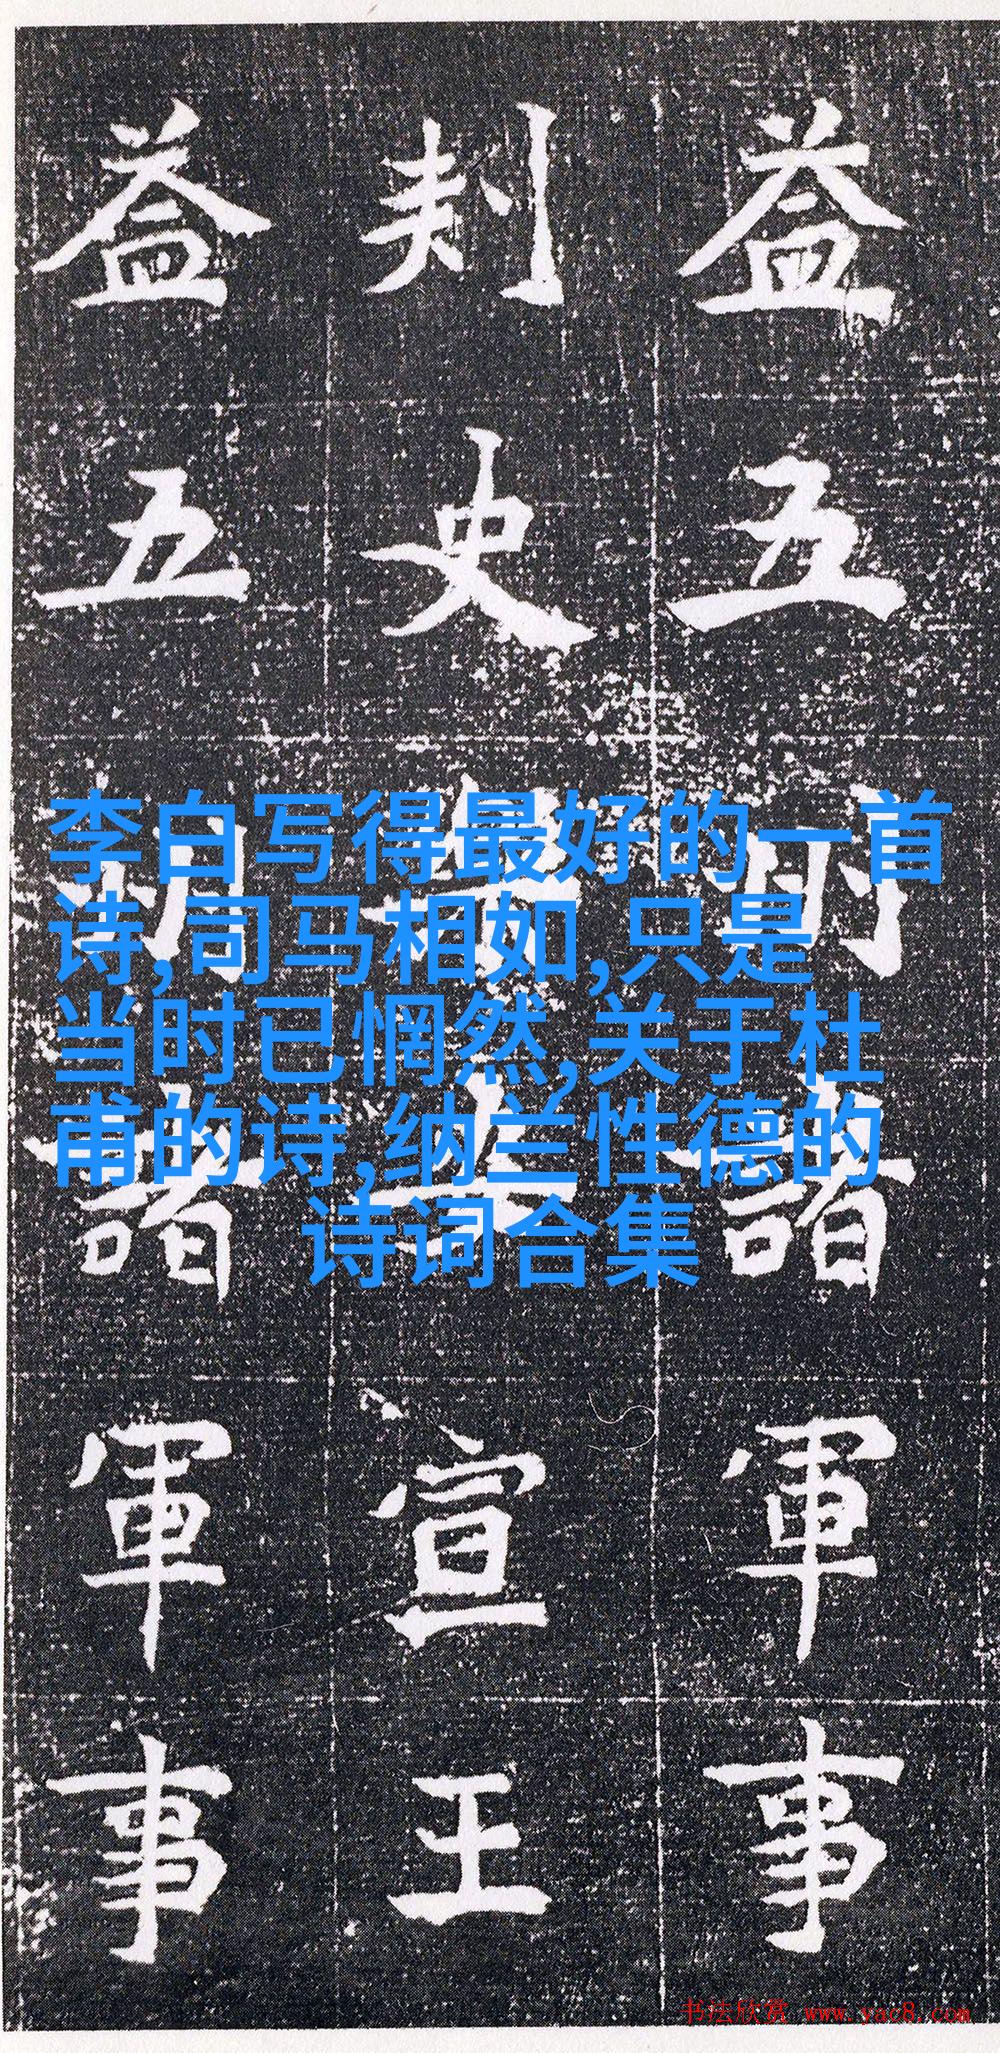 益五州諸軍事
刾史宣王
益五州諸軍事
李白写得最好的一首
诗,司马相如,只是
当时已惘然,关于杜
甫的诗,纳兰性德的
诗词合集
书法欣赏 www.yac8.com